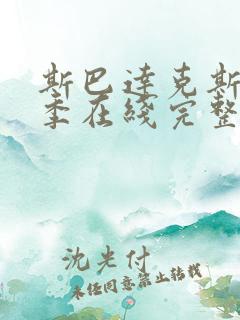 斯巴达克斯
季在线完整
沈光付
未经同意禁止转载